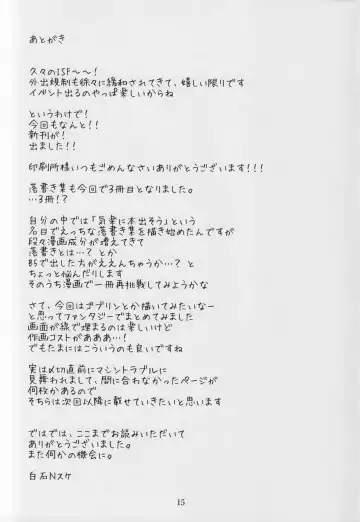 あとがき
久々のISF～～!
外出規制も徐々に緩和されてきて、嬉しい限りです
イベント出るのやっぱ楽しいからね
というわけで!
今回もなんと!!
新刊が!
出ました!!
印刷所様いつもごめんなさいありがとうございます!!!
落書き集も今回で3冊目となりました。
…3冊!?
自分の中では「気楽に本出そう」という
名目でえっちな落書き集を描き始めたんですが
段々漫画成分が増えてきて
落書きとは…? とか
B5で出した方がええんちゃうか…? と
ちょっと悩んだりします
そのうち漫画で一冊再挑戦してみようかな
さて、今回はゴブリンとか描いてみたいなー
と思ってファンタジーでまとめてみました
画面が緑で埋まるのは楽しいけど
作画コストがあああ…!
でもたまにはこういうのも良いですね
実は〆切直前にマシントラブルに
見舞われまして、間に合わなかったページが
何枚かあるので
そちらは次回以降に載せていきたいと思います
ではでは、ここまでお読みいただいて
ありがとうございました。
また何かの機会に。
白石Nスケ
15